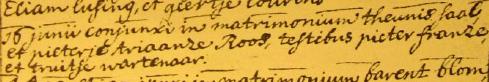 Eliam lusing, et geertje Courens
16 junii conjunxi in matrimonium theunis saal,
et pieterje triaanze Roos, testibus pieter franze,
et truitse wartenaar.
in matrimonium barent blom